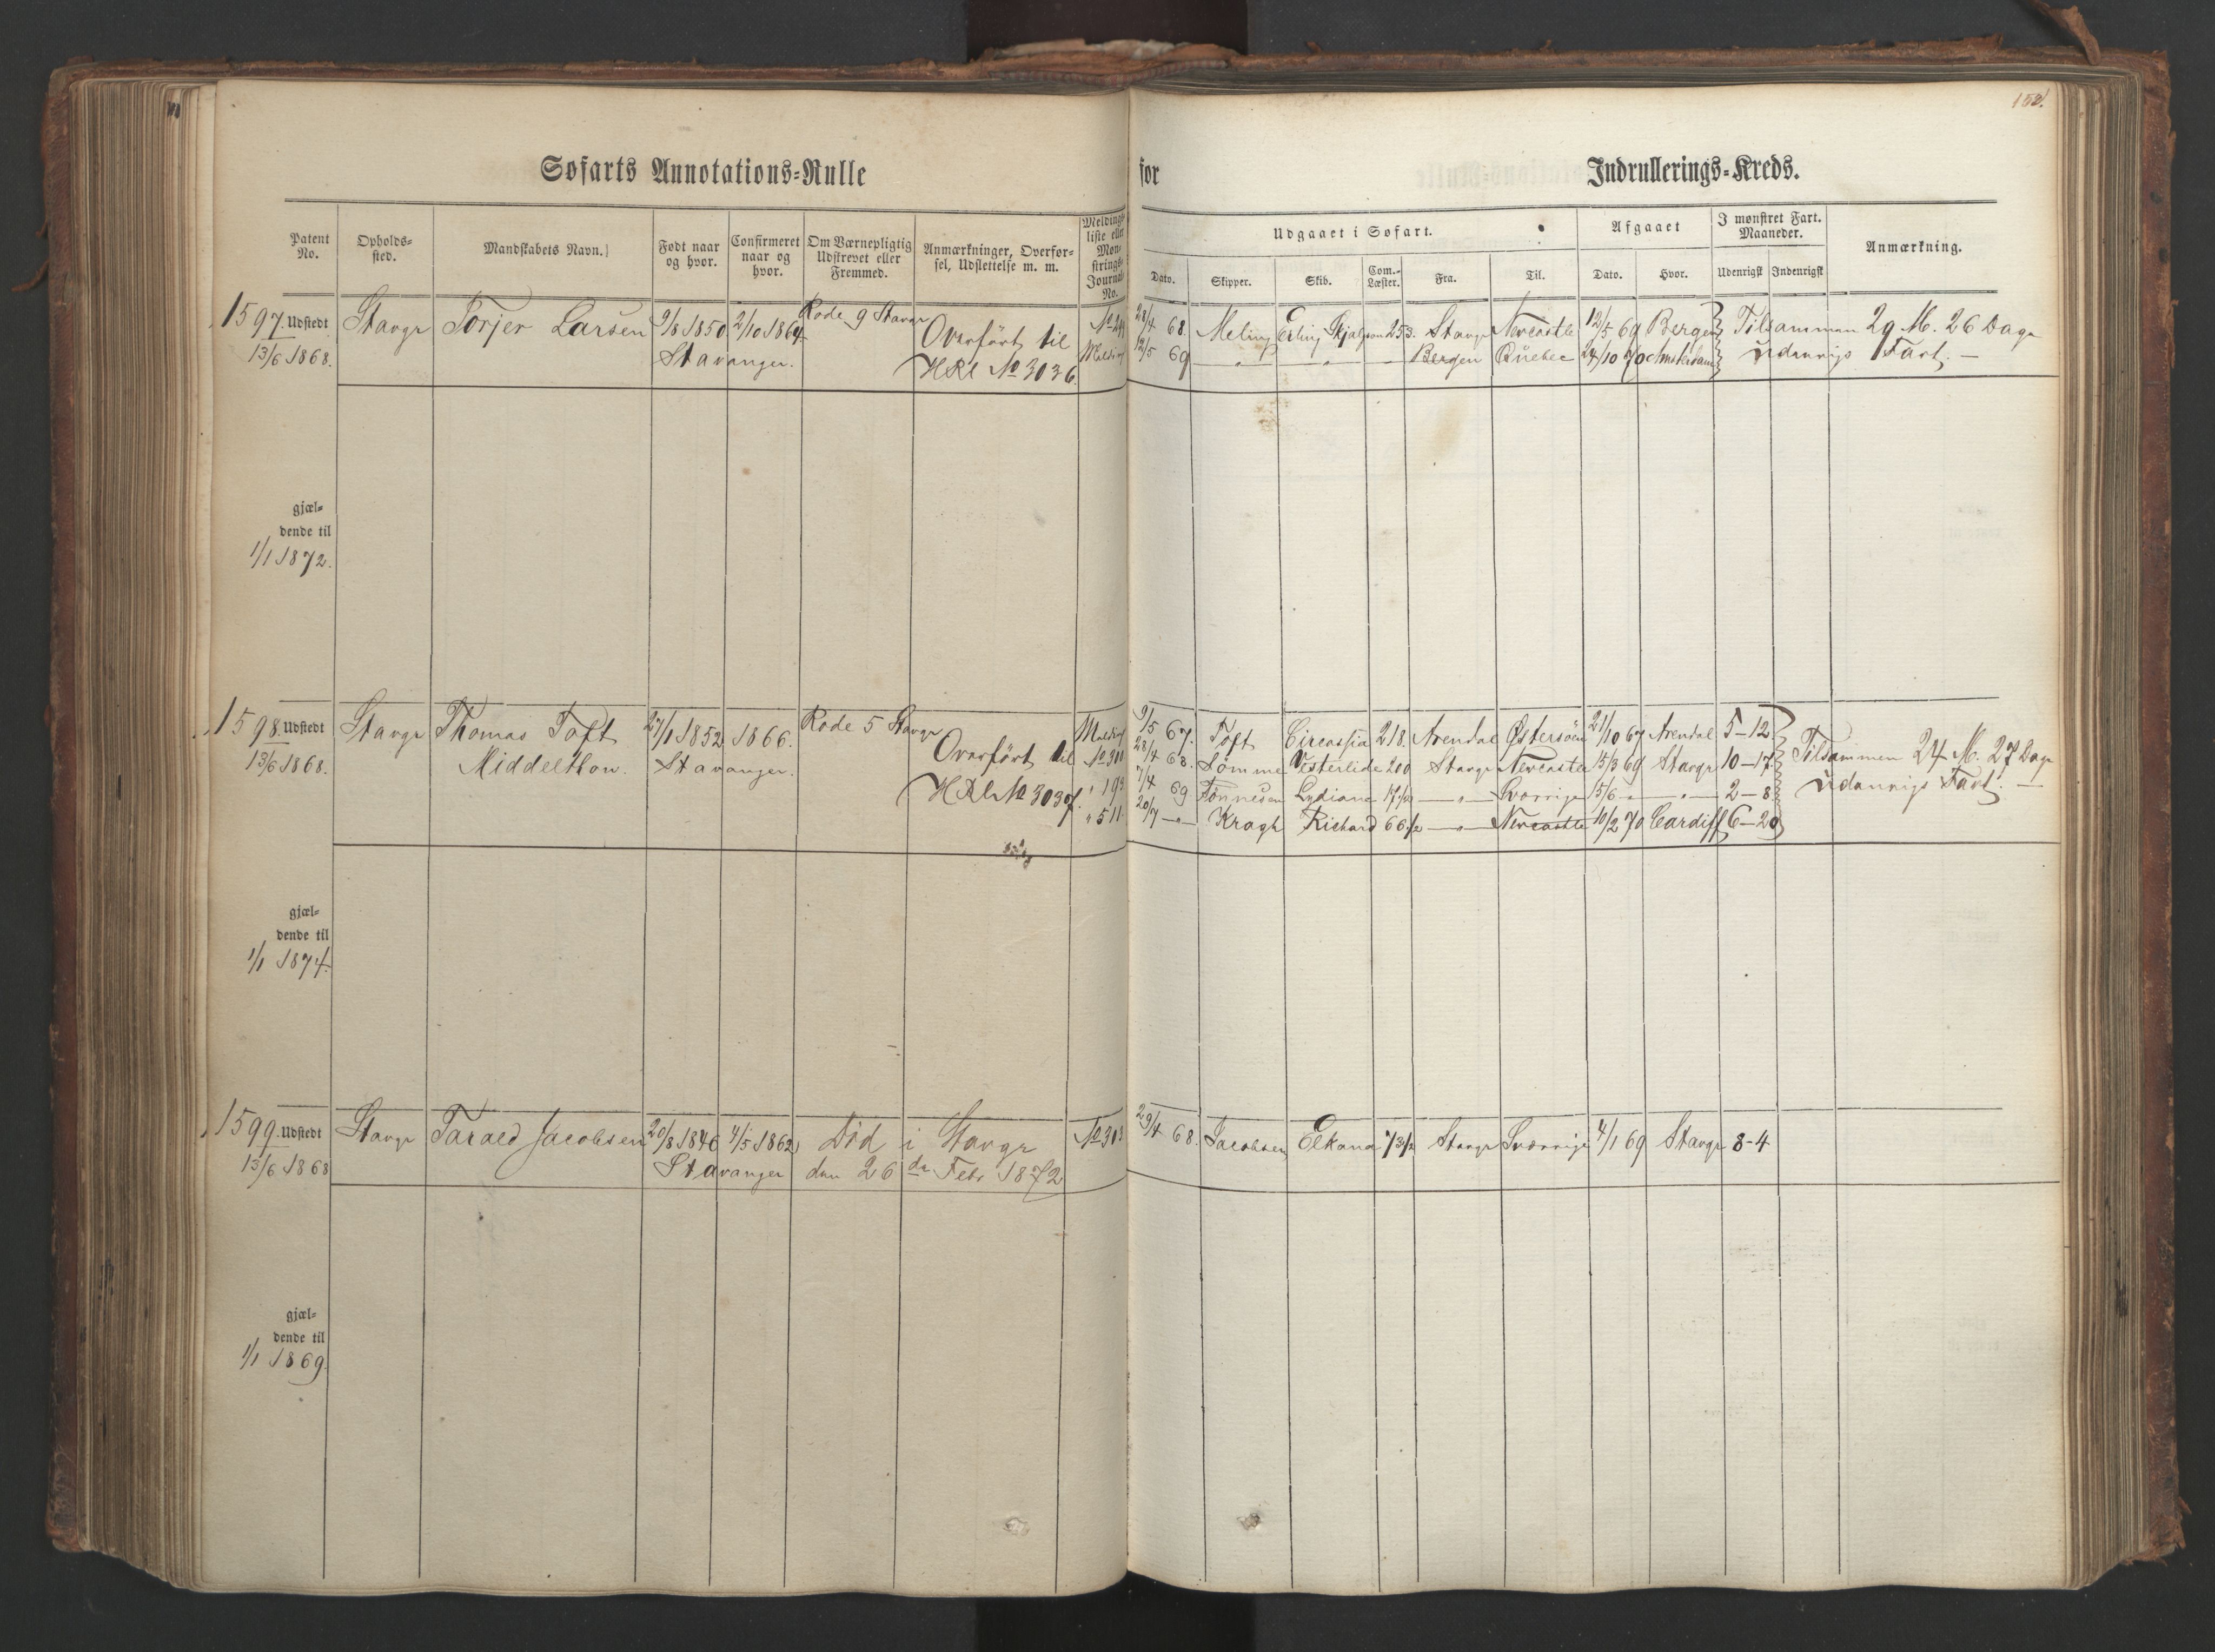 152.
Søfarts Annotations-Rulle for Indrullerings-Kreds.
Patent No. Opholds-sted. Mandskabets Navn. Født naar og hvor. Confirmeret naar og hvor. Om Værnepligtig Udskrevet eller Fremmed. Anmærkninger, Overfør-sel, Udslettelse m. m. Meldings-liste eller Mon-strings-Journal No.
Udgaaet i Søfart. Afgaaet I mønstret Fart. Maaneder. Anmærkning.
Dato. Skipper. Skib. Com.-Læster. Fra. Til. Dato. Hvor. Udenrigsk Indenrigsk
1597. Udstedt Stavgr Torjer Larsen 9/8 1850 2/10 1864 Rode 9 Stavgr Overført til 28/4 68. Meling Erling Skjalgson 253. Stavgr Newcastle 12/5 69 Bergen Tilsammen 29 M. 26 Dage
13/6 1868. Stavanger. HRl No 3036. 12/5 69 — „ — — „ — — Bergen Quebec 24/10 70 Amsterdam udenrigs Fart. —
gjæl-
dende til
1/1 1872.
1598. Udstedt Stavgr Thomas Toft 27/1 1852 1866. Rode 5 Stavgr 9/5 67. Toft Circassia 218. Arendal Østersøen 21/10 67 Arendal 5-12.
13/6 1868. Middelthon. Stavanger. Overført til No 300 28/4 68. Lømme Vesterlide 200 Stavgr Newcastle 15/3 69 Stavgr 10-17. Tilsammen 24 M. 27 Dage
HRl No 3037. „ 193 7/4 69 Tønnesen Lydiana — „ — Sverrige 15/6 — „ — 2-8 udenrigs Fart. —
„ 511. 20/7 — „ — Kragh Richard 66 1/2 — „ — Newcastle 10/2 70 Cardiff 6-20
gjæl-
dende til
1/1 1874.
1599. Udstedt Stavgr Tarald Jacobsen 20/8 1846 4/5 1862 Død i Stavgr No 303 29/4 68. Jacobsen Elkana 73 1/2 Stavgr Sverrige 4/1 69 Stavgr 8-4
13/6 1868 Stavanger den 26de Febr 1872
gjæl-
dende til
1/1 1869.